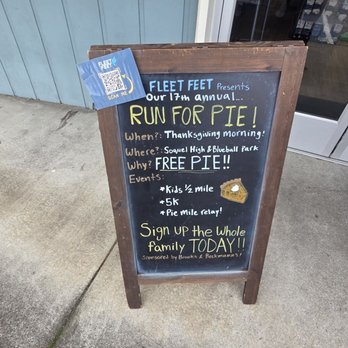 FLEET FEET Presents
Our 17th annual...
RUN FOR PIE!
When?: Thanksgiving morning!
Where?: Soquel High & Blueball Park
Why? FREE PIE!!
Events:
*Kids ½ mile
*5K
*Pie mile relay!
Sign up the whole
family TODAY!!
Sponsored by Brooks & Beckmanns!
SCAN ME